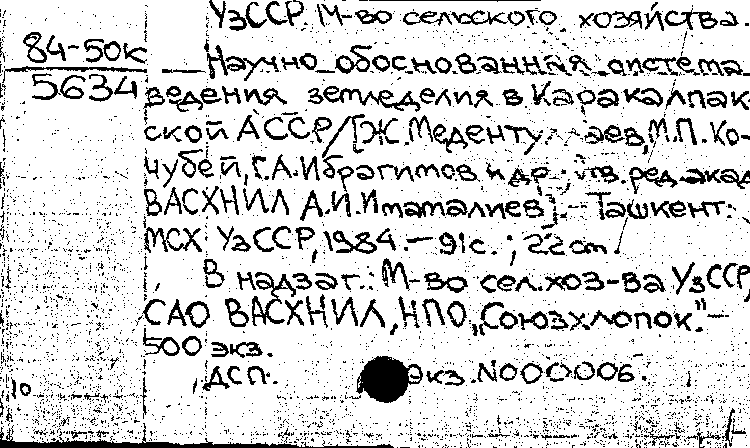 УзССР. М-во сельского хозяйства.
84-50к
5634
Научно обоснованная система
ведения земледелия в Каракалпак
ской АССР/[Ж. М.П. Ко-
чубей, Г.А. Ибрагимов и др.; ред. акад
ВАСХНИЛ А.И. Имамалиев]. - Ташкент:
МСХ УзССР, 1984. - 91с.; 22 см.
В надзаг.: М-во сел.хоз-ва УзССР,
САО ВАСХНИЛ, НПО „Союзхлопок." -
500 экз.
ДСП. Экз. N000006.
10